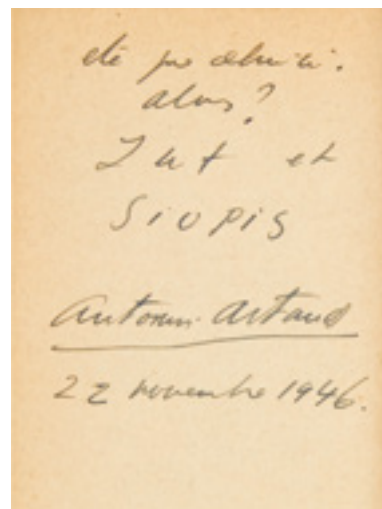 été
alors?
Zut et
SiUPiS
Antonin Artaud
22 novembre 1946.